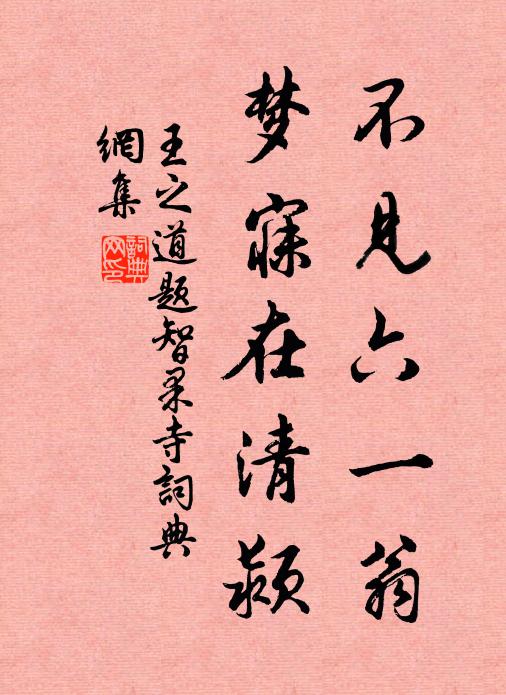 不见六一翁
梦寐在清颍
王之道题智果寺詞典
網集
詞典
网印